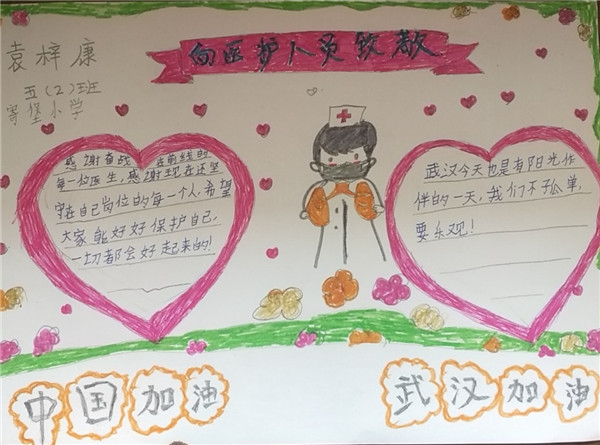 向医护人员致敬
袁梓康
五(2)班
寨堡小学
感谢奋战在前线的
每一位医生,感谢现在还坚
守在自己岗位的每一个人.希望
大家能好好保护自己,
一切都会好起来的!
武汉今天也是有阳光作
伴的一天,我们不孤单,
要乐观!
中国加油
武汉加油